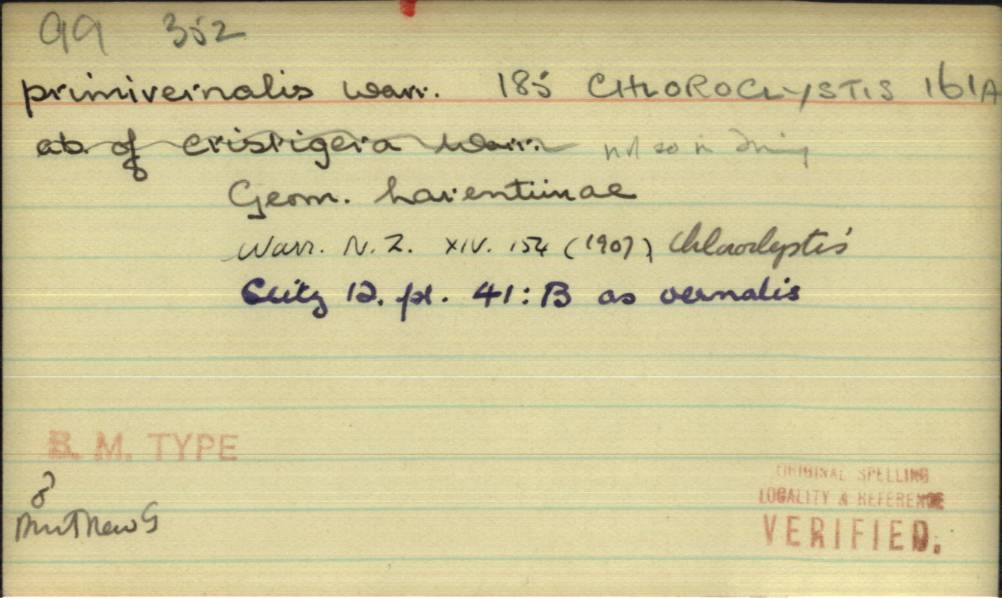 99 352
primivernalis Warr. 185 CHLOROCLYSTIS 161A
ab. of cristigera Warr. not so in
Geom. Larentiinae
Warr. N. Z. XIV. 154 (1907) Chloroclystis
Seitz 12. pl. 41:B as vernalis
B. M. TYPE
♂
Brit New G
ORIGINAL SPELLING
LOCALITY & REFERENCE
VERIFIED.